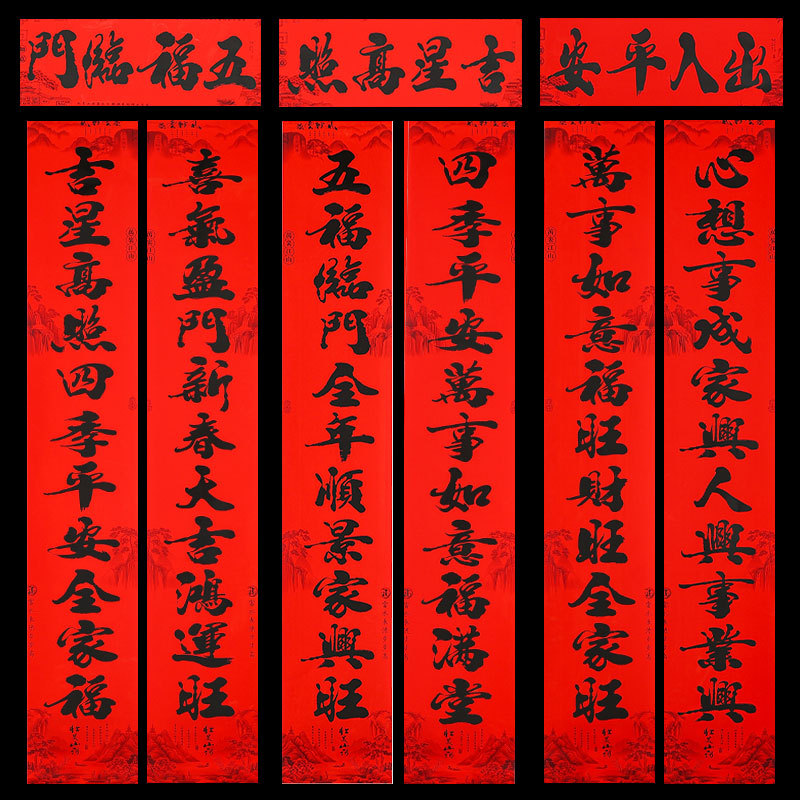 五福臨門
吉星高照
出入平安
喜氣盈門新春天吉鴻運旺
吉星高照四季平安全家福
四季平安萬事如意福滿堂
五福臨門全年順景家興旺
心想事成家興人興事業興
萬事如意福旺財旺全家旺
萬裏江山
萬裏江山
萬裏江山